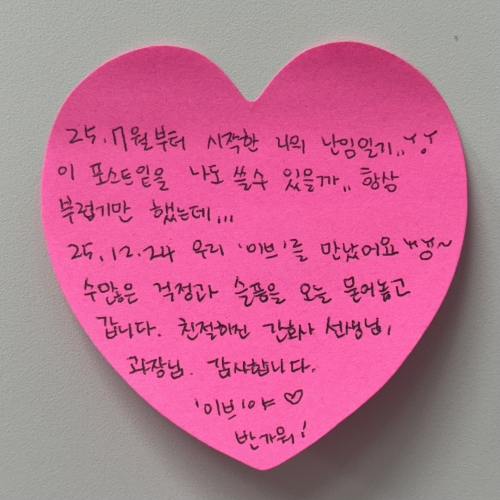 25. 7월부터 시작한 나의 난임일기,, ㅜㅜ
이 포스트잍을 나도 쓸수 있을까,, 항상
부럽기만 했는데,,,
25. 12. 24 우리 '이브'를 만났어요 ~
수많은 걱정과 슬픔을 오늘 묻어놓고
갑니다. 친절하신 간호사 선생님,
과장님. 감사합니다.
'이브'야 ♡
반가워!